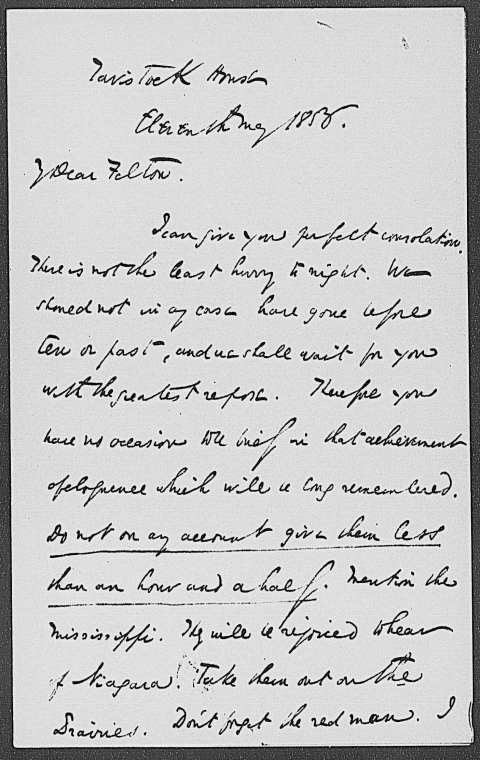 Tavistock House
Eleventh May 1853.
My Dear Felton.
I can give you perfect consolation.
There is not the least hurry to night. We
should not in any case have gone before
ten or past, and we shall wait for you
with the greatest repose. Therefore you
have no occasion to be brief in that achievement
of eloquence which will be long remembered.
Do not on any account give them less
than an hour and a half. Mention the
Mississippi. They will be rejoiced to hear
of Niagara. Take them out on the
Prairies. Don't forget the red man. I